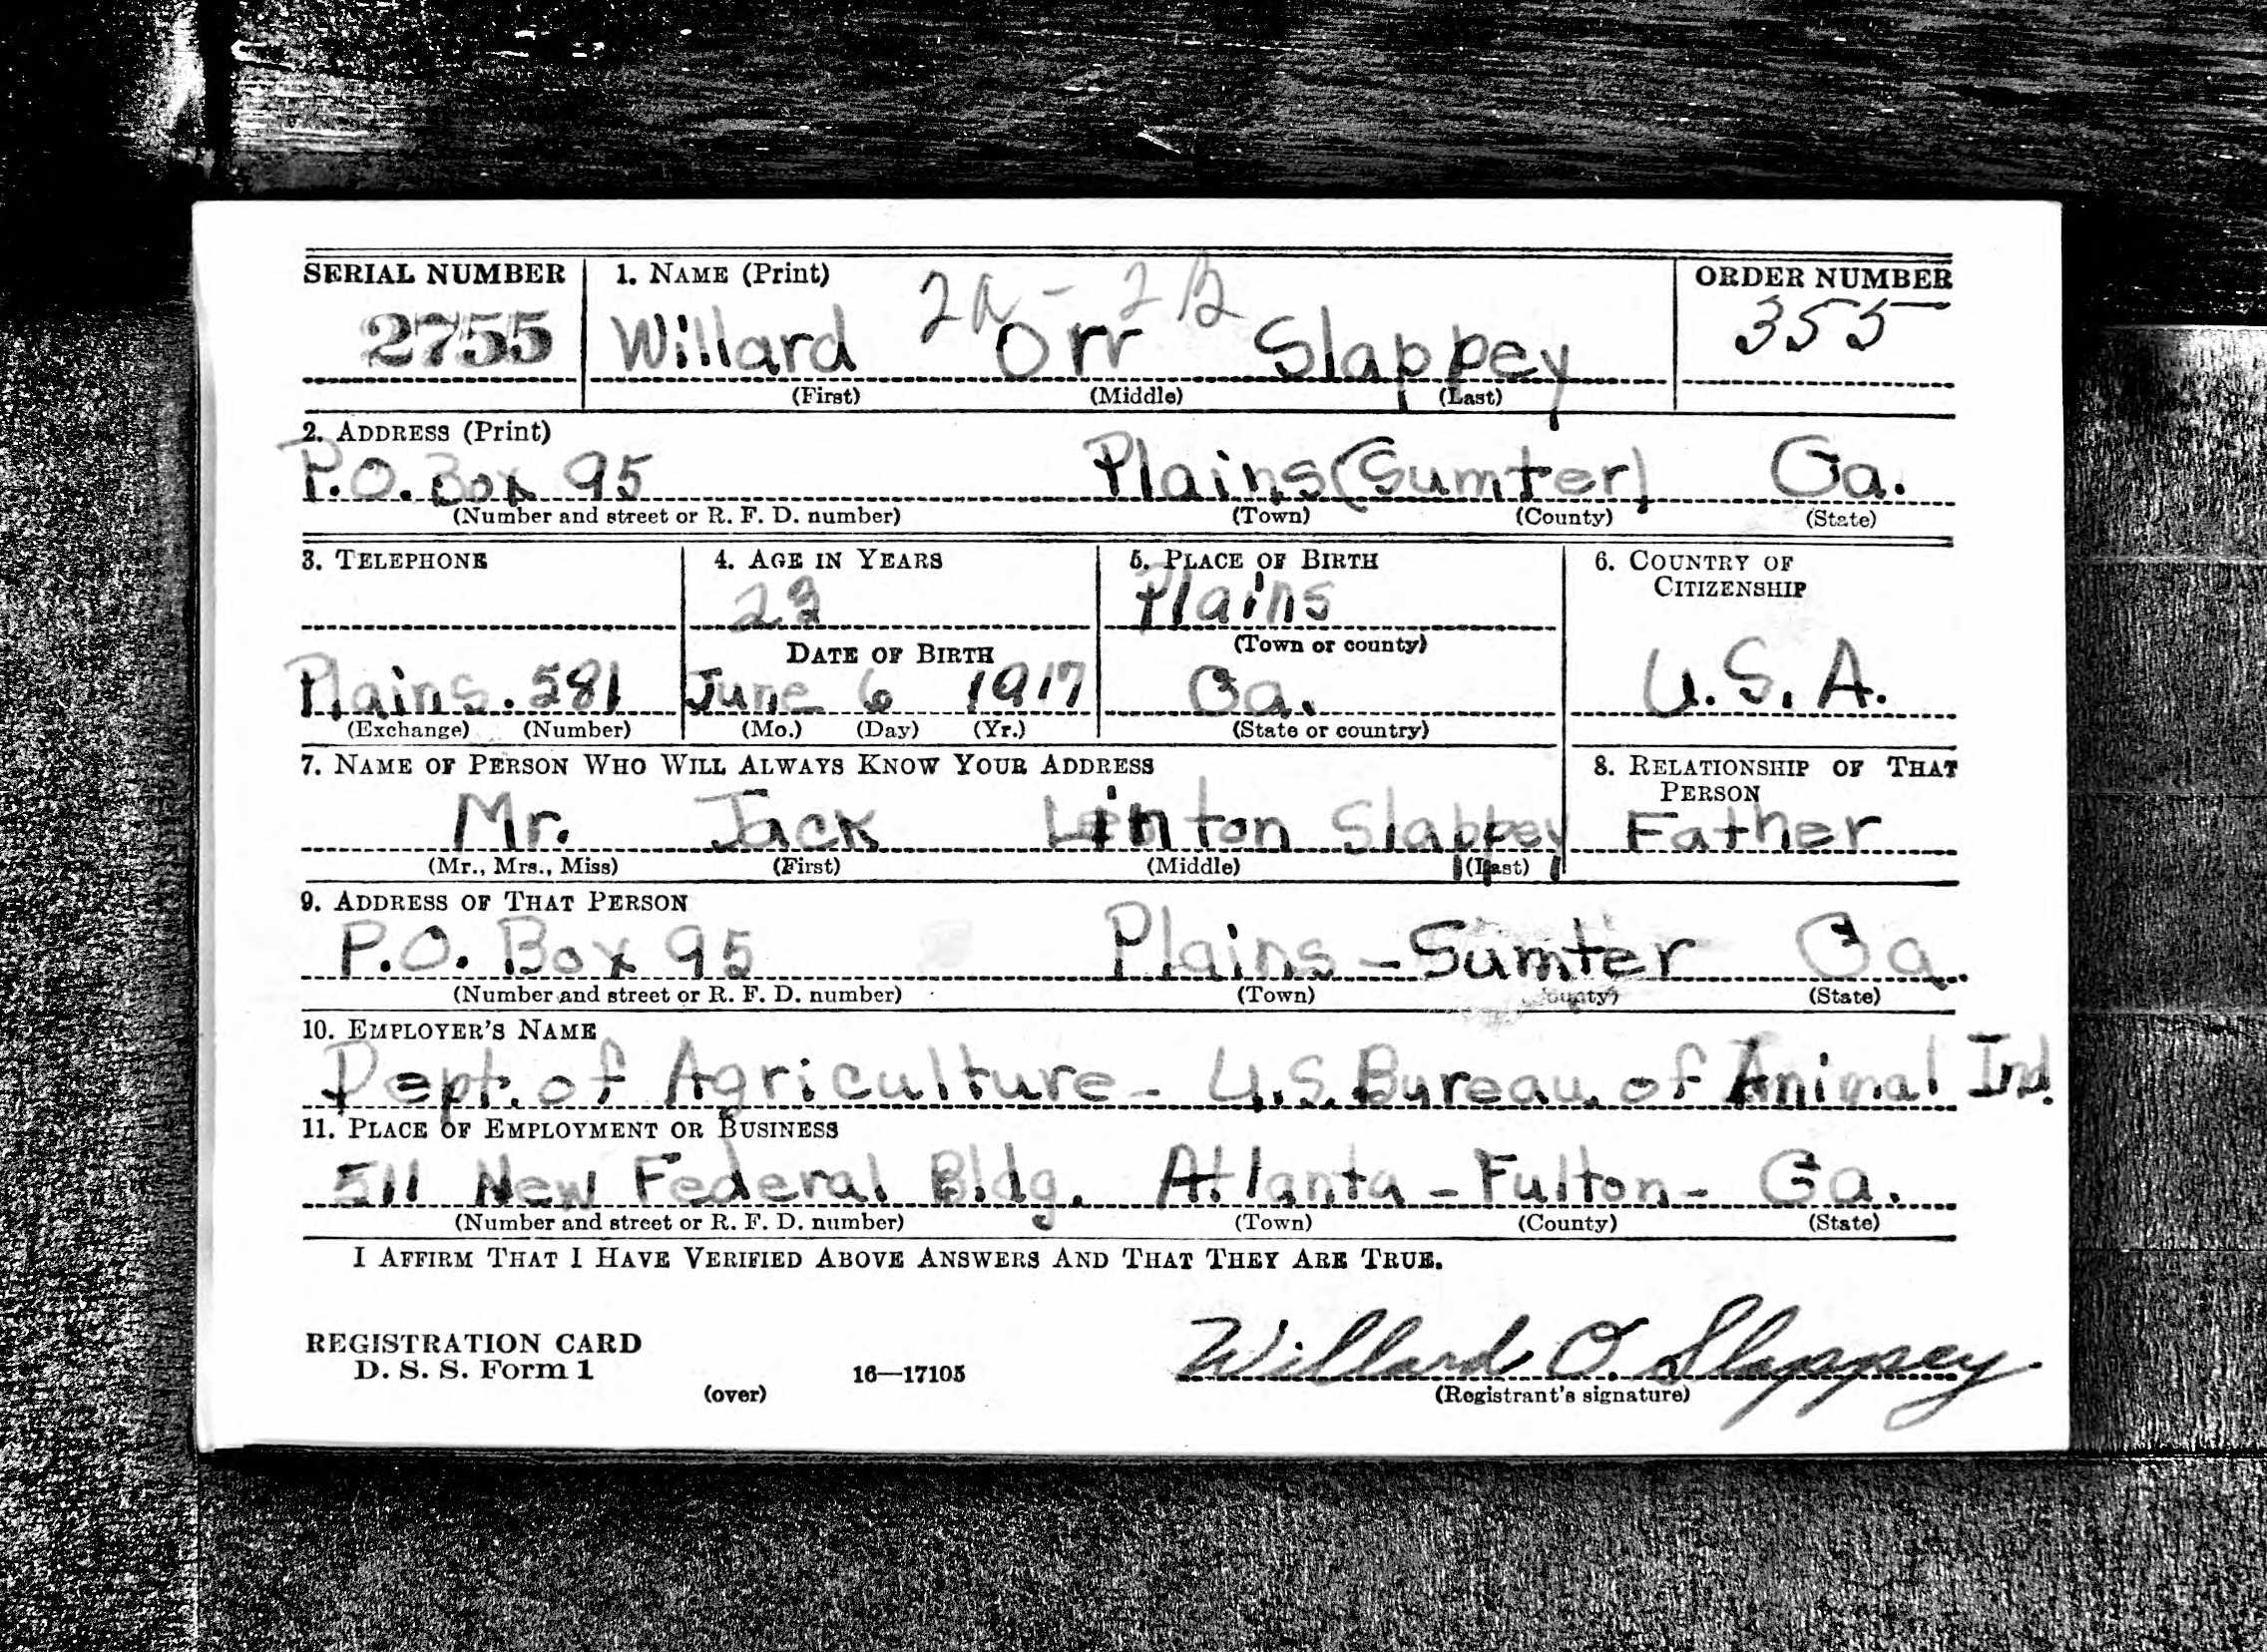 SERIAL NUMBER 1. NAME (Print) 2a - 2B ORDER NUMBER
2755 Willard Orr Slappey 355
(First) (Middle) (Last)
2. ADDRESS (Print)
P.O. Box 95 Plains (Sumter) Ga.
(Number and street or R. F. D. number) (Town) (County) (State)
3. TELEPHONE 4. AGE IN YEARS 5. PLACE OF BIRTH 6. COUNTRY OF CITIZENSHIP
23 Plains
DATE OF BIRTH (Town or county)
Plains. 581 June 6 1917 Ga. U.S.A.
(Exchange) (Number) (Mo.) (Day) (Yr.) (State or country)
7. NAME OF PERSON WHO WILL ALWAYS KNOW YOUR ADDRESS 8. RELATIONSHIP OF THAT PERSON
Mr. Jack Linton Slappey Father
(Mr., Mrs., Miss) (First) (Middle) (Last)
9. ADDRESS OF THAT PERSON
P.O. Box 95 Plains - Sumter Ga.
(Number and street or R. F. D. number) (Town) (County) (State)
10. EMPLOYER'S NAME
Dept. of Agriculture - U.S. Bureau of Animal Ind.
11. PLACE OF EMPLOYMENT OR BUSINESS
511 New Federal Bldg. Atlanta - Fulton - Ga.
(Number and street or R. F. D. number) (Town) (County) (State)
I AFFIRM THAT I HAVE VERIFIED ABOVE ANSWERS AND THAT THEY ARE TRUE.
REGISTRATION CARD
D. S. S. Form 1 16—17105 Willard O. Slappey
(over) (Registrant's signature)